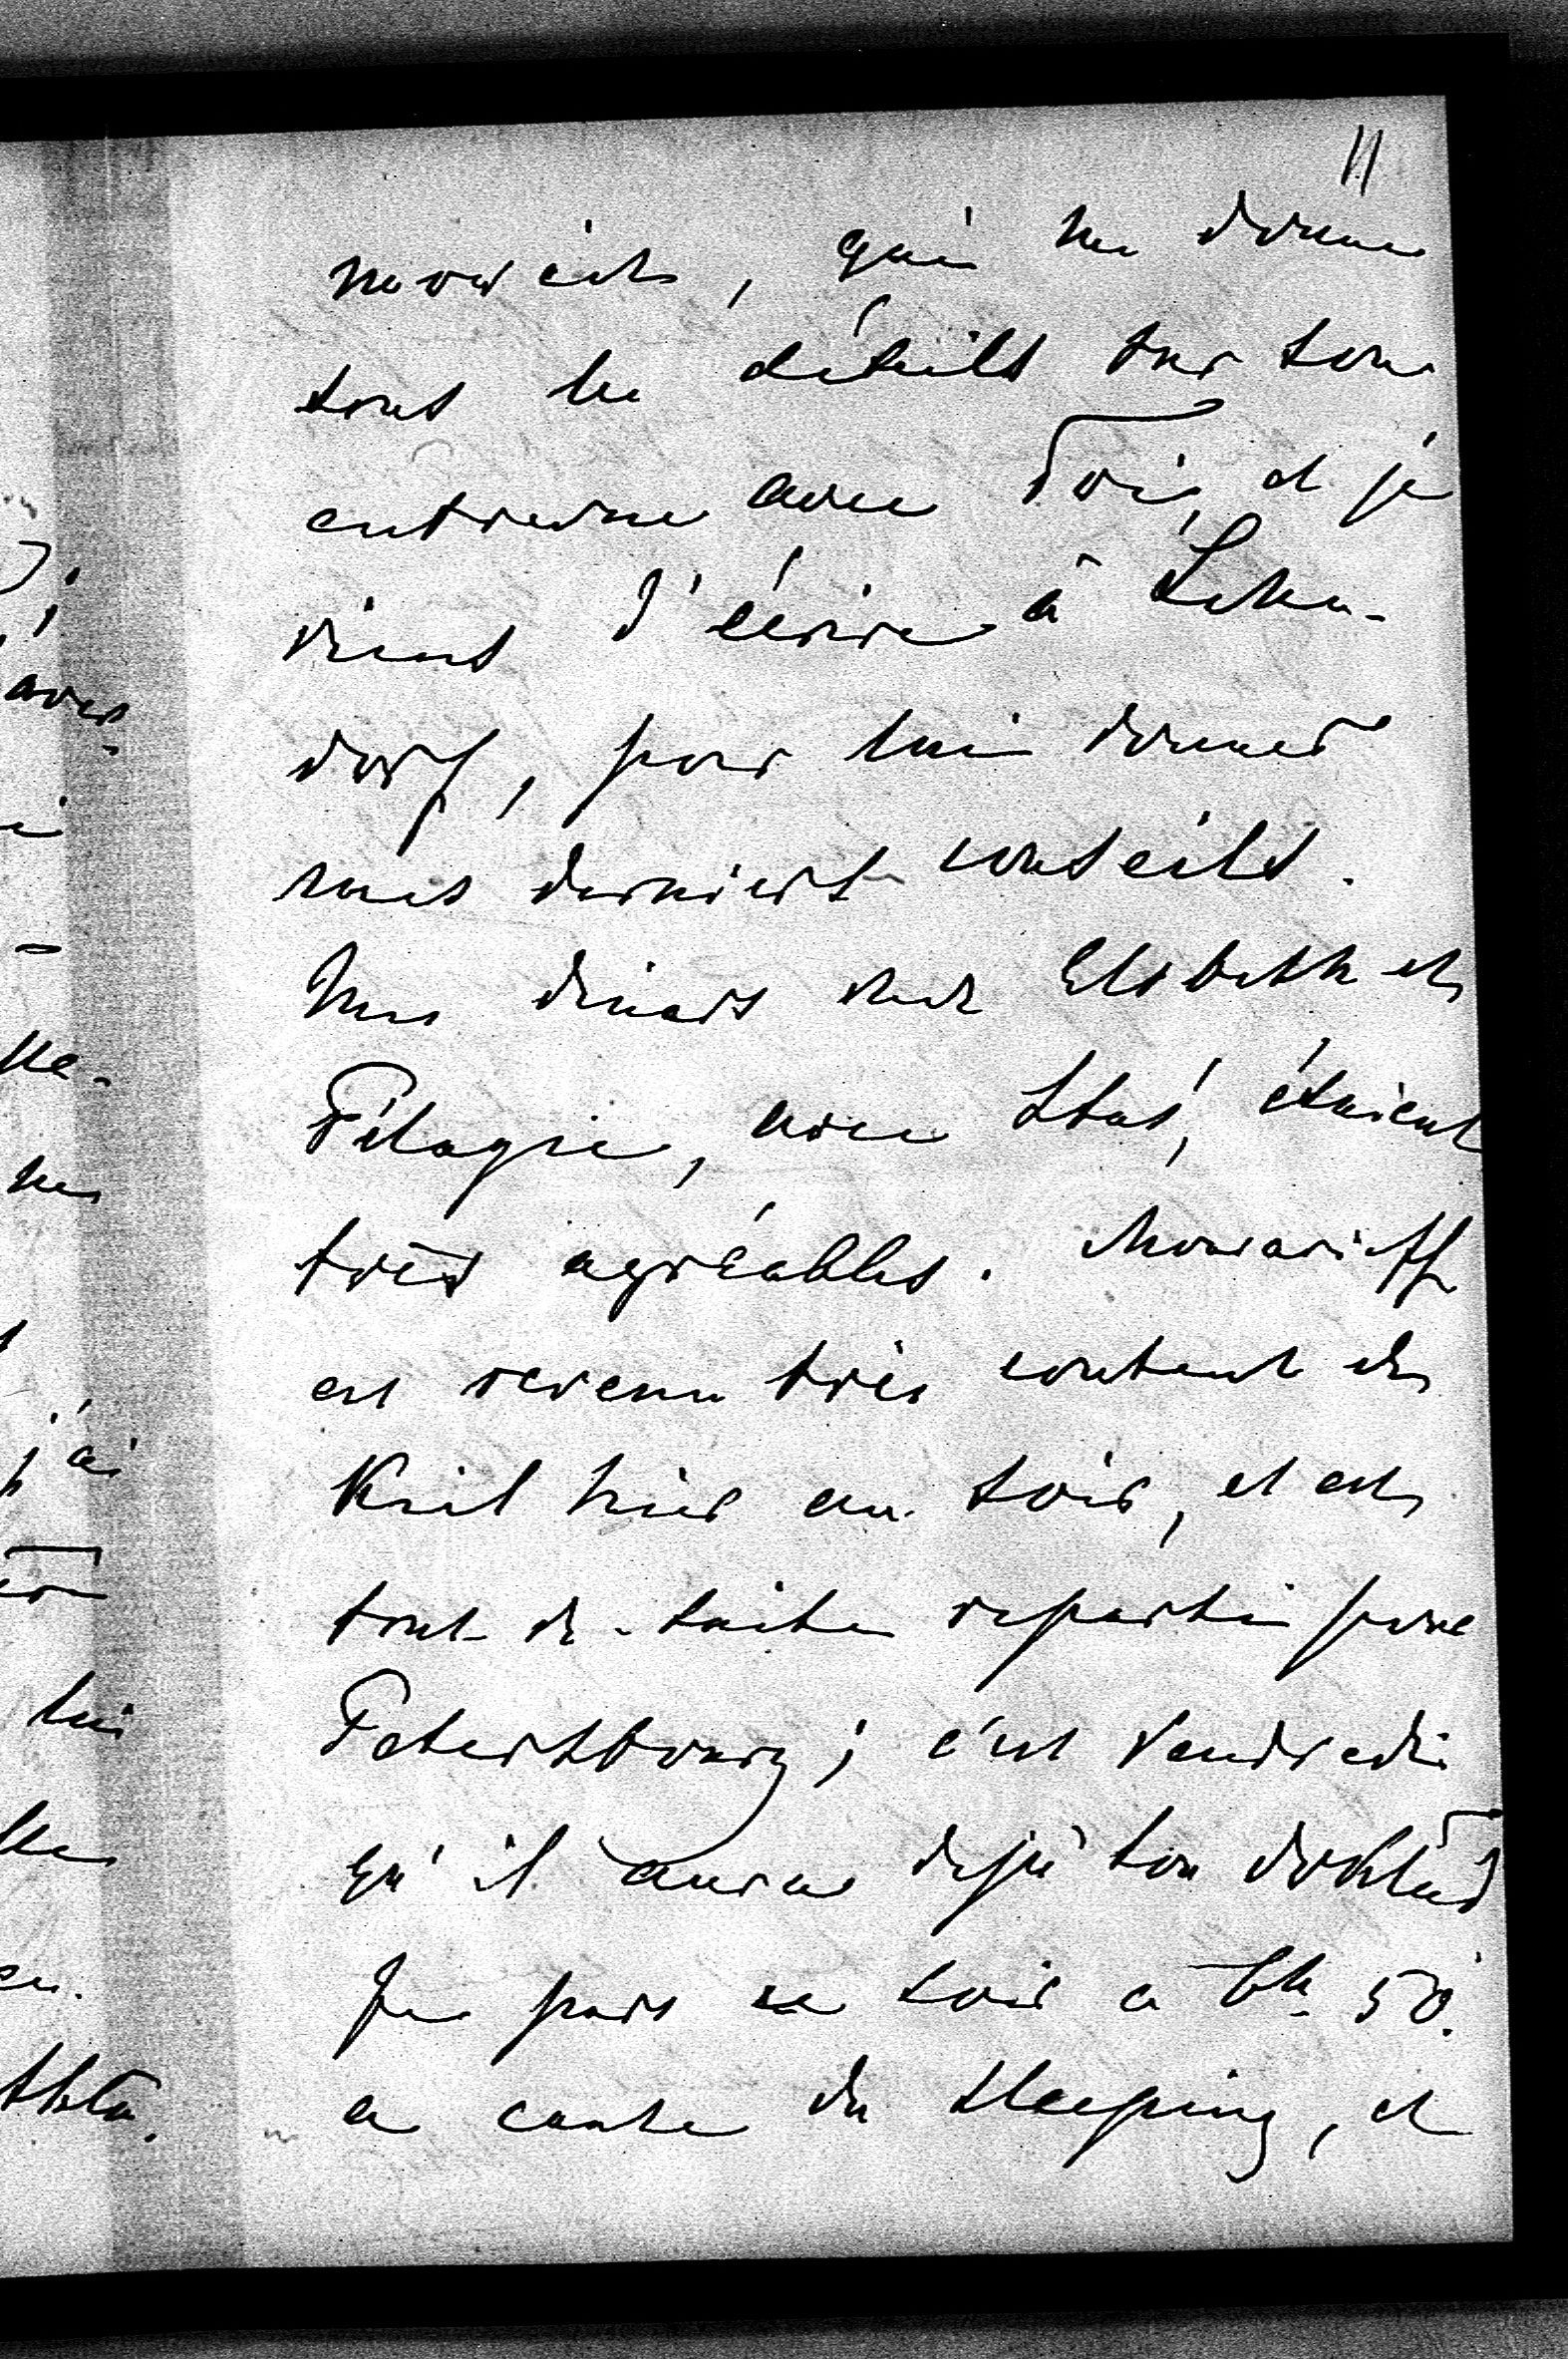 11
nowich, qui me donne
tous les détails sur son
entrevue avec Toi, et je
viens d'écrire à Scher-
dorf, pour lui donner
mes derniers conseils.
Mes diners chez Elsbeth et
Pélagie, avec Stas', étaient
très agréables. Mourawieff
est revenu très content de
Kiel hier au soir, et est
tout de suite reparti pour
Petersbourg; c'est Vendredi
qu'il aura dejà son doklad
Je pars ce soir a 6h 50.
a cause du Sleeping, et